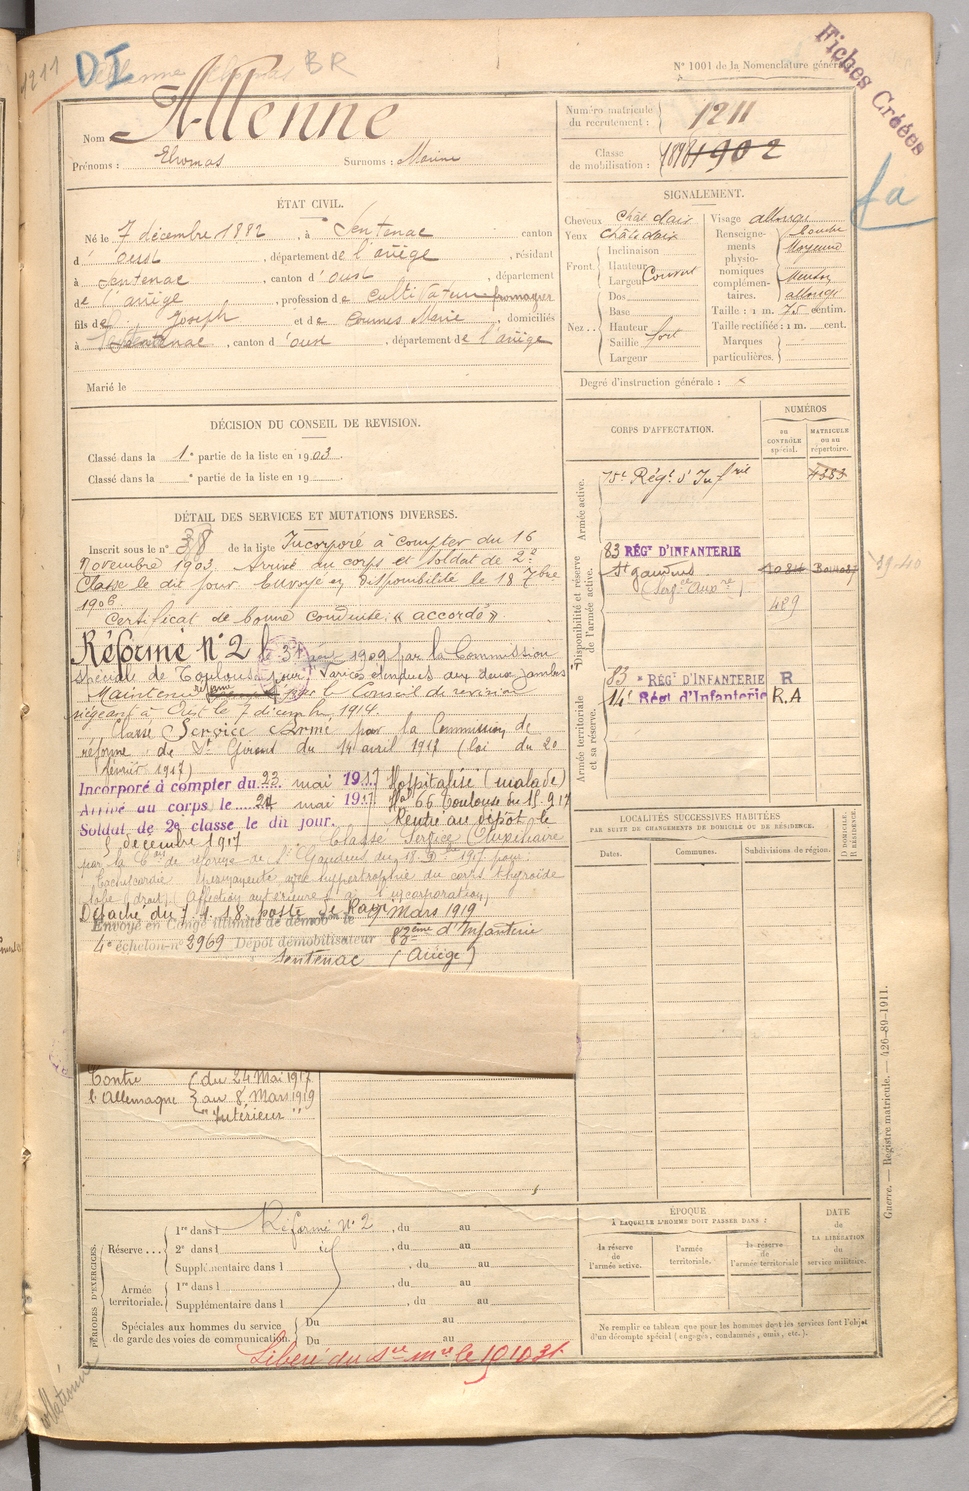 1211
DI
BR
N° 1001 de la Nomenclature générale
Fiches Créées
fa
Nom Attenne
Prénoms : Thomas Surnoms : Marine
Numéro matricule du recrutement : 1211
Classe de mobilisation : 1898 1902
ÉTAT CIVIL.
Né le 7 décembre 1882, à Sentenac canton
d' Oust, département de l'ariège, résidant
à Sentenac, canton d'oust, département
de l'ariège, profession de cultivateur fromager
fils de Joseph et de Counes Marie, domiciliés
à Sentenac, canton d'oust, département de l'ariège
Marié le
SIGNALEMENT.
Cheveux chât clair
Yeux chât clair
Front
Inclinaison
Hauteur
Largeur
Couvert
Nez
Dos
Base
Hauteur
Saillie fort
Largeur
Visage allongé
Renseignements physionomiques complémentaires.
bouche
Moyenne
Menton
allongé
Taille : 1 m. 75 centim.
Taille rectifiée : 1 m. cent.
Marques particulières.
Degré d'instruction générale : x
DÉCISION DU CONSEIL DE REVISION.
Classé dans la 1e partie de la liste en 1903.
Classé dans la e partie de la liste en 19
CORPS D'AFFECTATION.
NUMÉROS
au CONTRÔLE spécial.
MATRICULE ou au répertoire.
Armée active.
Régt d'Infrie
4353
Disponibilité et réserve de l'armée active.
83 RÉGT D'INFANTERIE
St gaudens
(Serce Auxre)
489
Armée territoriale et sa réserve.
83e RÉGT D'INFANTERIE R
14e Régt d'Infanterie R.A
39-40
DÉTAIL DES SERVICES ET MUTATIONS DIVERSES.
Inscrit sous le n° 38 de la liste Incorporé à compter du 16
Novembre 1903. Arrivé au corps et soldat de 2e
Classe le dit jour. Envoyé en disponibilité le 18 7bre
1906
Certificat de bonne conduite : « accordé »
Réformé N°2 le 3 août 1909 par la Commission
spéciale de Toulouse pour : varices étendues aux deux jambes
Maintenu réformé par le Conseil de revision
siégeant à Oust le 7 décembre 1914.
Classé Service Armé par la Commission de
réforme de St Girons du 14 avril 1917 (loi du 20
février 1917)
Incorporé à compter du 23 mai 1917 Hospitalisé (malade)
Arrivé au corps le 24 mai 1917 Hal 66 Toulouse du 11.9.17
Soldat de 2e classe le dit jour. Rentré au dépôt le
5 décembre 1917 Classé Service Auxiliaire
par la Con de réforme de St Gaudens du 18 Dbre 1917 pour :
tachycardie permanente avec hypertrophie du corps thyroïde
lobe (droit) (Affection antérieure à l'incorporation)
Détaché du 7.1.18 poste de
Envoyé en Congé illimité de démobon le 9 Mars 1919
4e échelon n° 3969 Dépôt démobilisateur 83ème d'Infanterie
Sentenac (Ariège)
Contre l'Allemagne
du 24 Mai 1917
au 8 Mars 1919
"Intérieur"
LOCALITÉS SUCCESSIVES HABITÉES
PAR SUITE DE CHANGEMENTS DE DOMICILE OU DE RÉSIDENCE.
Dates.
Communes.
Subdivisions de région.
D DOMICILE. R RÉSIDENCE.
Guerre. — Registre matricule. — 426-89-1911.
PÉRIODES D'EXERCICES.
Réserve...
1re dans l Réformé N°2, du au
2e dans l id, du au
Supplémentaire dans l, du au
Armée territoriale.
1re dans l, du au
Supplémentaire dans l, du au
Spéciales aux hommes du service de garde des voies de communication.
Du au
Du au
Libéré du sce mre le 19 10 31
ÉPOQUE
À LAQUELLE L'HOMME DOIT PASSER DANS :
la réserve de l'armée active.
l'armée territoriale.
la réserve de l'armée territoriale
DATE de LA LIBÉRATION du service militaire.
Ne remplir ce tableau que pour les hommes dont les services font l'objet
d'un décompte spécial (engagés, condamnés, omis, etc.).